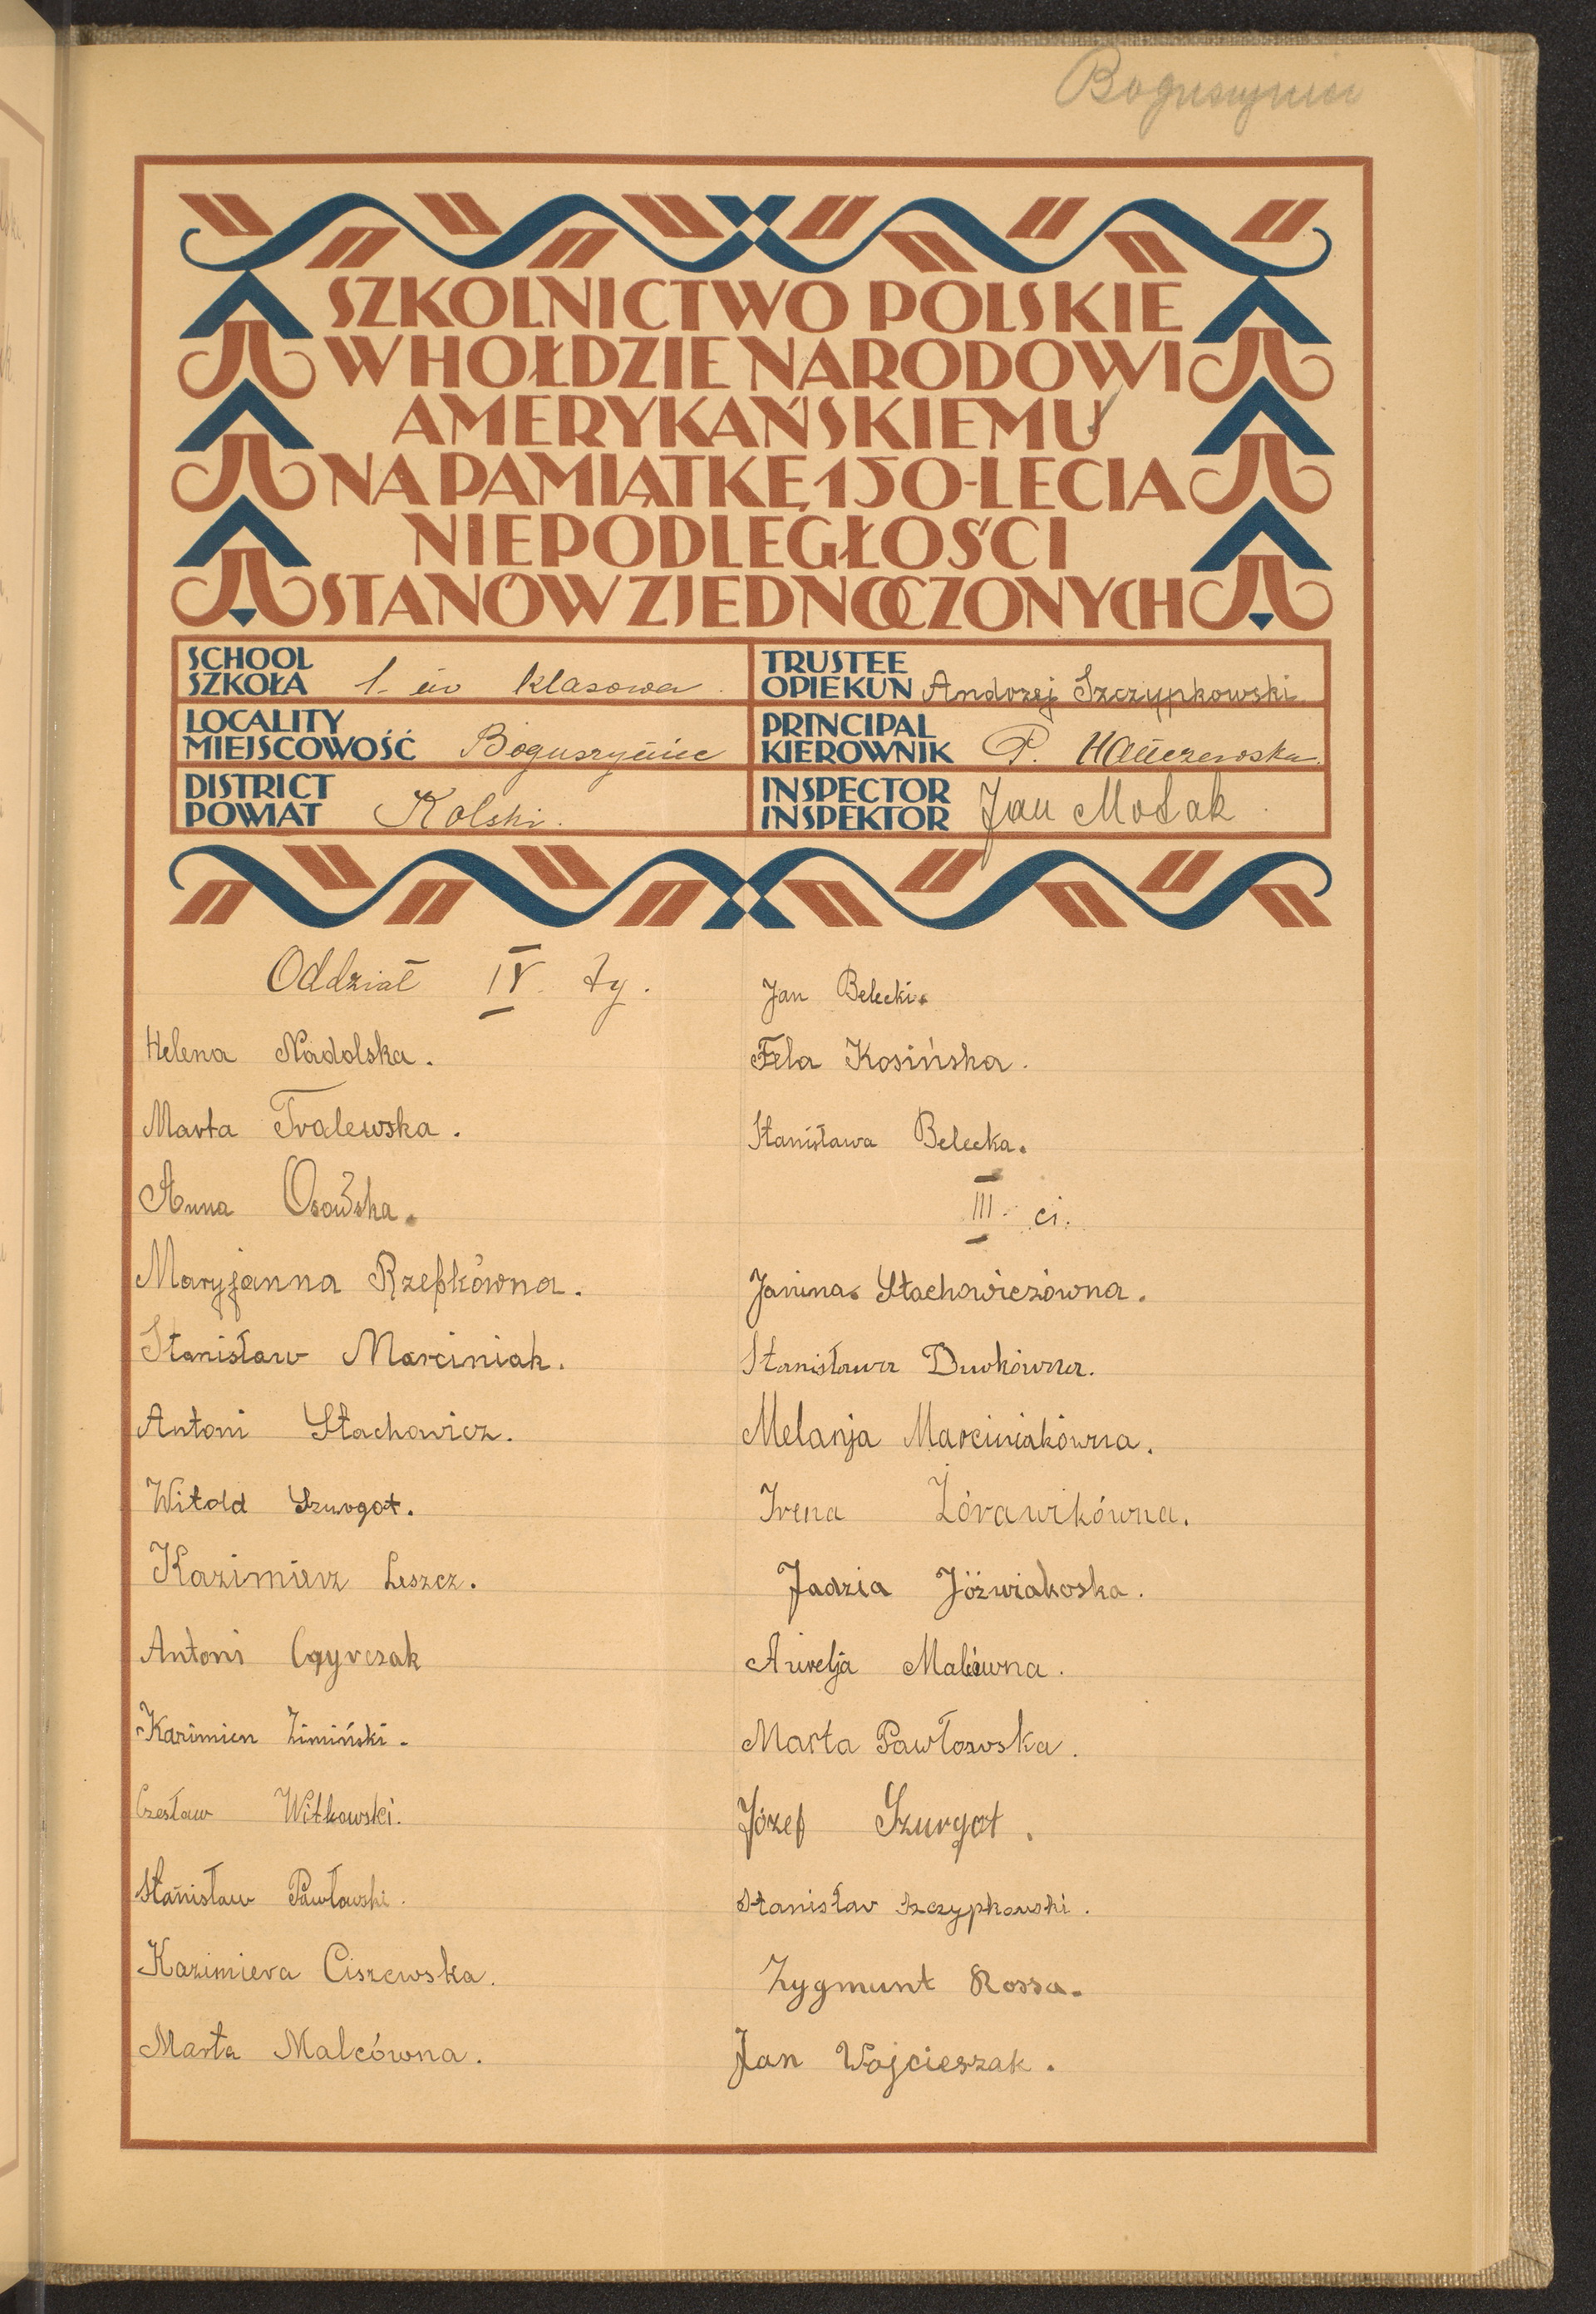 Boguszyniec
SZKOLNICTWO POLSKIE
W HOŁDZIE NARODOWI
AMERYKAŃSKIEMU
NA PAMIĄTKĘ 150-LECIA
NIEPODLEGŁOŚCI
STANÓW ZJEDNOCZONYCH
SCHOOL
SZKOŁA 1-no klasowa.
LOCALITY
MIEJSCOWOŚĆ Boguszyniec
DISTRICT
POWIAT Kolski.
TRUSTEE
OPIEKUN Andrzej Szczypkowski
PRINCIPAL
KIEROWNIK P.
INSPECTOR
INSPEKTOR Jan
Oddział IV ty.
Helena Nadolska.
Marta Tralewska.
Anna Osowska.
Maryjanna Rzepkówna.
Stanisław Marciniak.
Antoni Stachowicz.
Witold Szurgot.
Kazimierz Leszcz.
Antoni
Kazimierz Zimiński.
Czesław Witkowski.
Stanisław Pawłowski.
Kazimiera Ciszewska.
Marta Malcówna.
Jan Belecki.
Fela Kosińska.
Stanisława Belecka.
III ci.
Janina Stachowiczówna.
Stanisława Dudkówna.
Melanja Marciniakówna.
Irena Żórawikówna.
Jadzia Jóźwiakoska.
Aurelja Malcówna.
Marta Pawłowska.
Józef Szurgot.
Stanisław Szczypkowski.
Zygmunt Rossa.
Jan Wojcieszak.